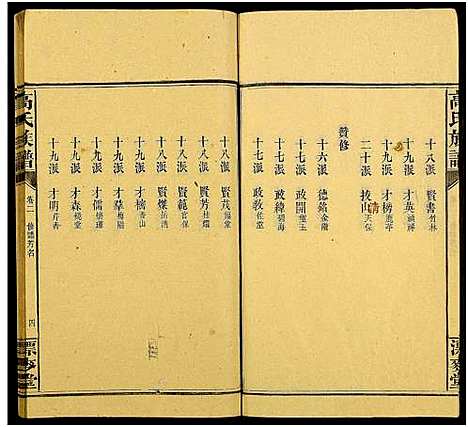 高氏族譜
漂麥堂
十八派 賢書 竹林
十九派 才英
十九派 才榜
二十派 技山 天保
清
贊修
十六派 德銘 金龍
十七派 政開
十七派 政緯 碧海
十七派 政教 佐堂
十八派 賢茂 錫堂
十八派 賢芳 桂瓊
十八派 賢範 官保
十八派 賢燦
十九派 才檎 春山
十九派 才羣 梅階
十九派 才儒
十九派 才森 燒堂
十九派 才明 芹香
高氏族譜
卷一 修譜芳名
四
漂麥堂